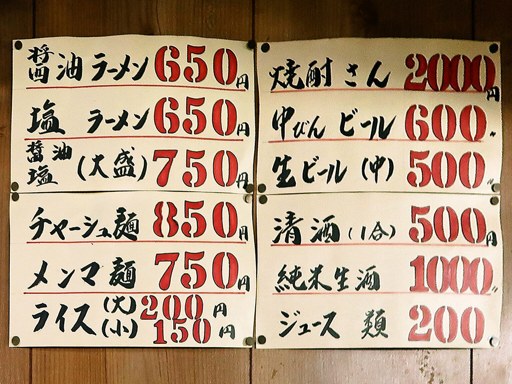 醤油ラーメン650円
塩ラーメン650円
醤油塩(大盛)750円
チャーシュー麺850円
メンマ麺750円
ライス(大)200円
(小)150円
焼酎さん2000円
中びんビール600〃
生ビール(中)500〃
清酒(1合)500円
純米生酒1000〃
ジュース類200